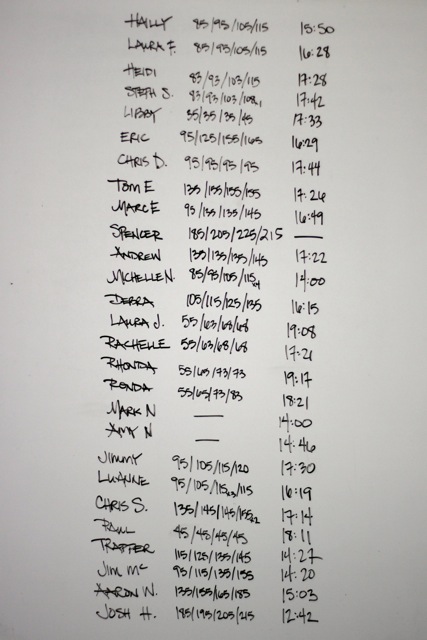 HAILLY 85/95/105/115 15:50
LAURA F. 85/95/105/115 16:28
HEIDI 83/93/103/115 17:28
STETH S. 83/93/103/108,1 17:42
LIBBY 35/35/35/45 17:33
ERIC 95/125/155/165 16:29
CHRIS D. 95/95/95/95 17:44
TOM E 135/155/155/155 17:26
MARC E 95/135/135/145 16:49
SPENCER 185/205/225/215 —
ANDREW 135/135/135/145 17:22
MICHELLE N. 85/95/105/115 14:00
DEBRA 105/115/125/135 16:15
LAURA J. 55/63/68/68 19:08
RACHELLE 55/63/68/68 17:21
RHONDA 55/65/73/73 19:17
RONDA 55/65/73/83 18:21
MARK N — 14:00
AMY N — 14:46
JIMMY 95/105/115/120 17:30
LUANNE 95/105/115/115 16:19
CHRIS S. 135/145/145/155 17:14
PAUL 45/45/45/45 18:11
TRAPPER 115/125/135/145 14:27
JIM MC 95/115/135/155 14:20
AARON W. 135/155/165/185 15:03
JOSH H. 185/195/205/215 12:42